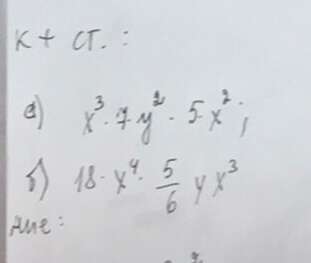 к + ст. :
а) x³ · 7y² · 5x² ;
б) 18 · x⁴ · 5/6 y x³
ние :